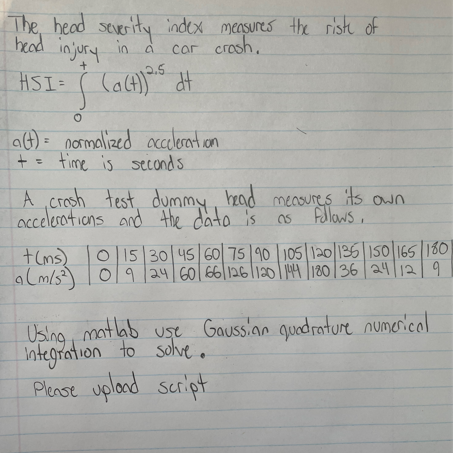 The head severity index measures the risk of
head injury in a car crash.
HSI = ∫₀ᵗ (a(t))^2.5 dt
a(t) = normalized acceleration
t = time is seconds
A crash test dummy head measures its own
accelerations and the data is as follows.
t(ms) | 0 | 15 | 30 | 45 | 60 | 75 | 90 | 105 | 120 | 135 | 150 | 165 | 180
a(m/s²) | 0 | 9 | 24 | 60 | 66 | 126 | 120 | 144 | 180 | 36 | 24 | 12 | 9
Using matlab use Gaussian quadrature numerical
integration to solve.
Please upload script